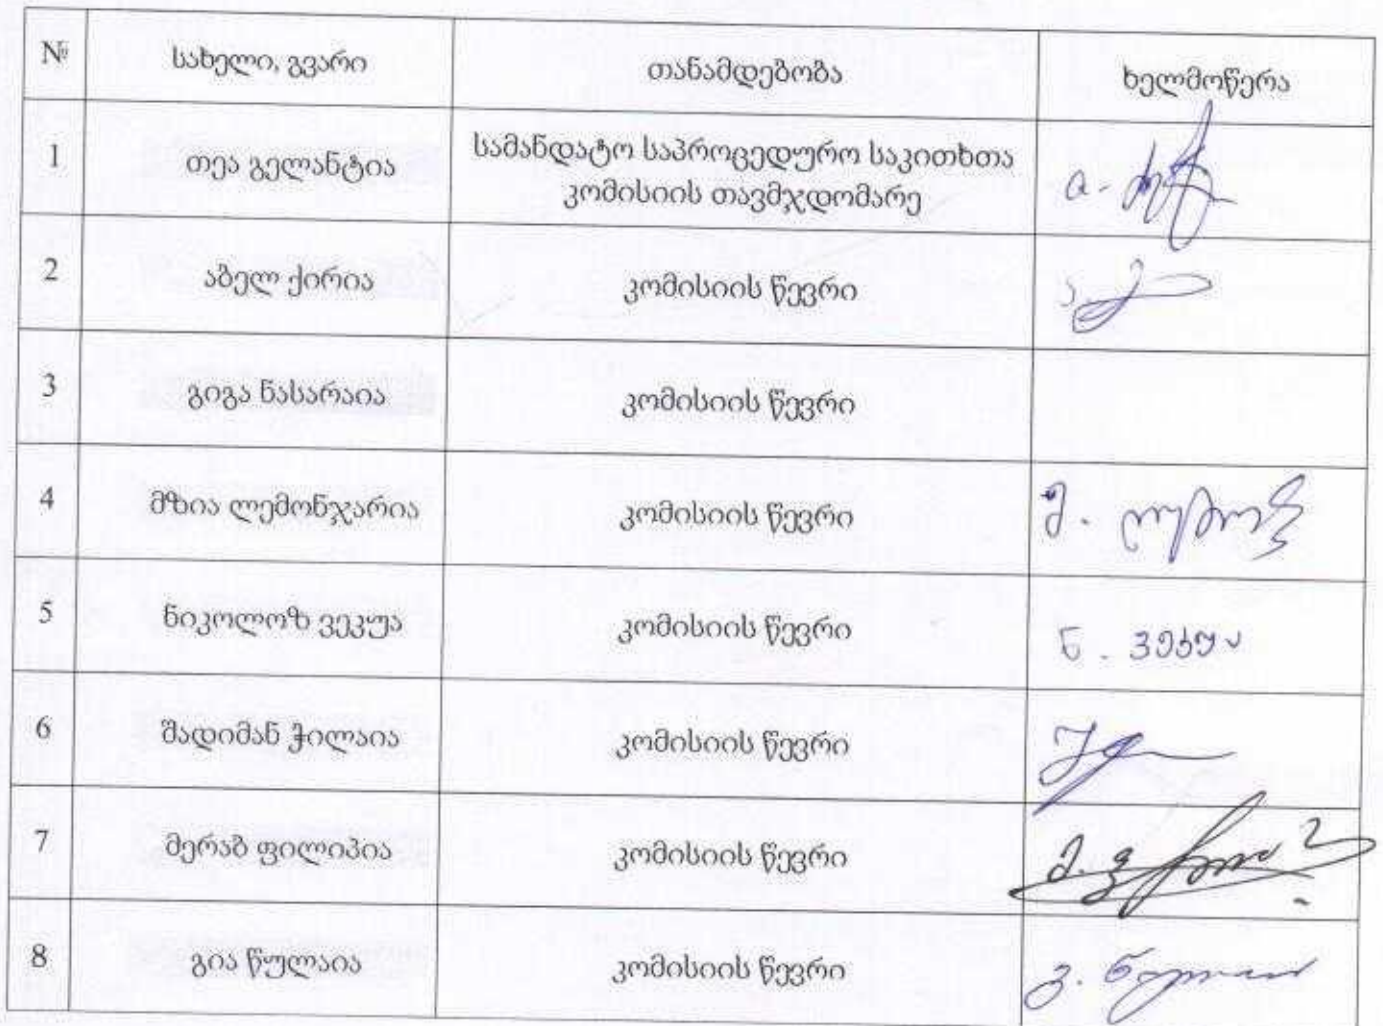 № სახელი, გვარი თანამდებობა ხელმოწერა
1 თეა გელანტია სამანდატო საპროცედურო საკითხთა
კომისიის თავმჯდომარე
2 აბელ ქირია კომისიის წევრი
3 გიგა ნასარაია კომისიის წევრი
4 მზია ლემონჯარია კომისიის წევრი
5 ნიკოლოზ ვეკუა კომისიის წევრი ნ. ვეკუა
6 შადიმან ჭილაია კომისიის წევრი
7 მერაბ ფილიპია კომისიის წევრი
8 გია წულაია კომისიის წევრი